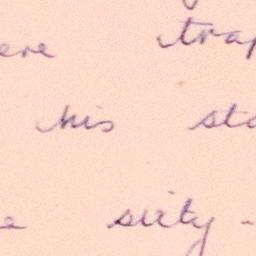 ere trap
his sta
e sixty-